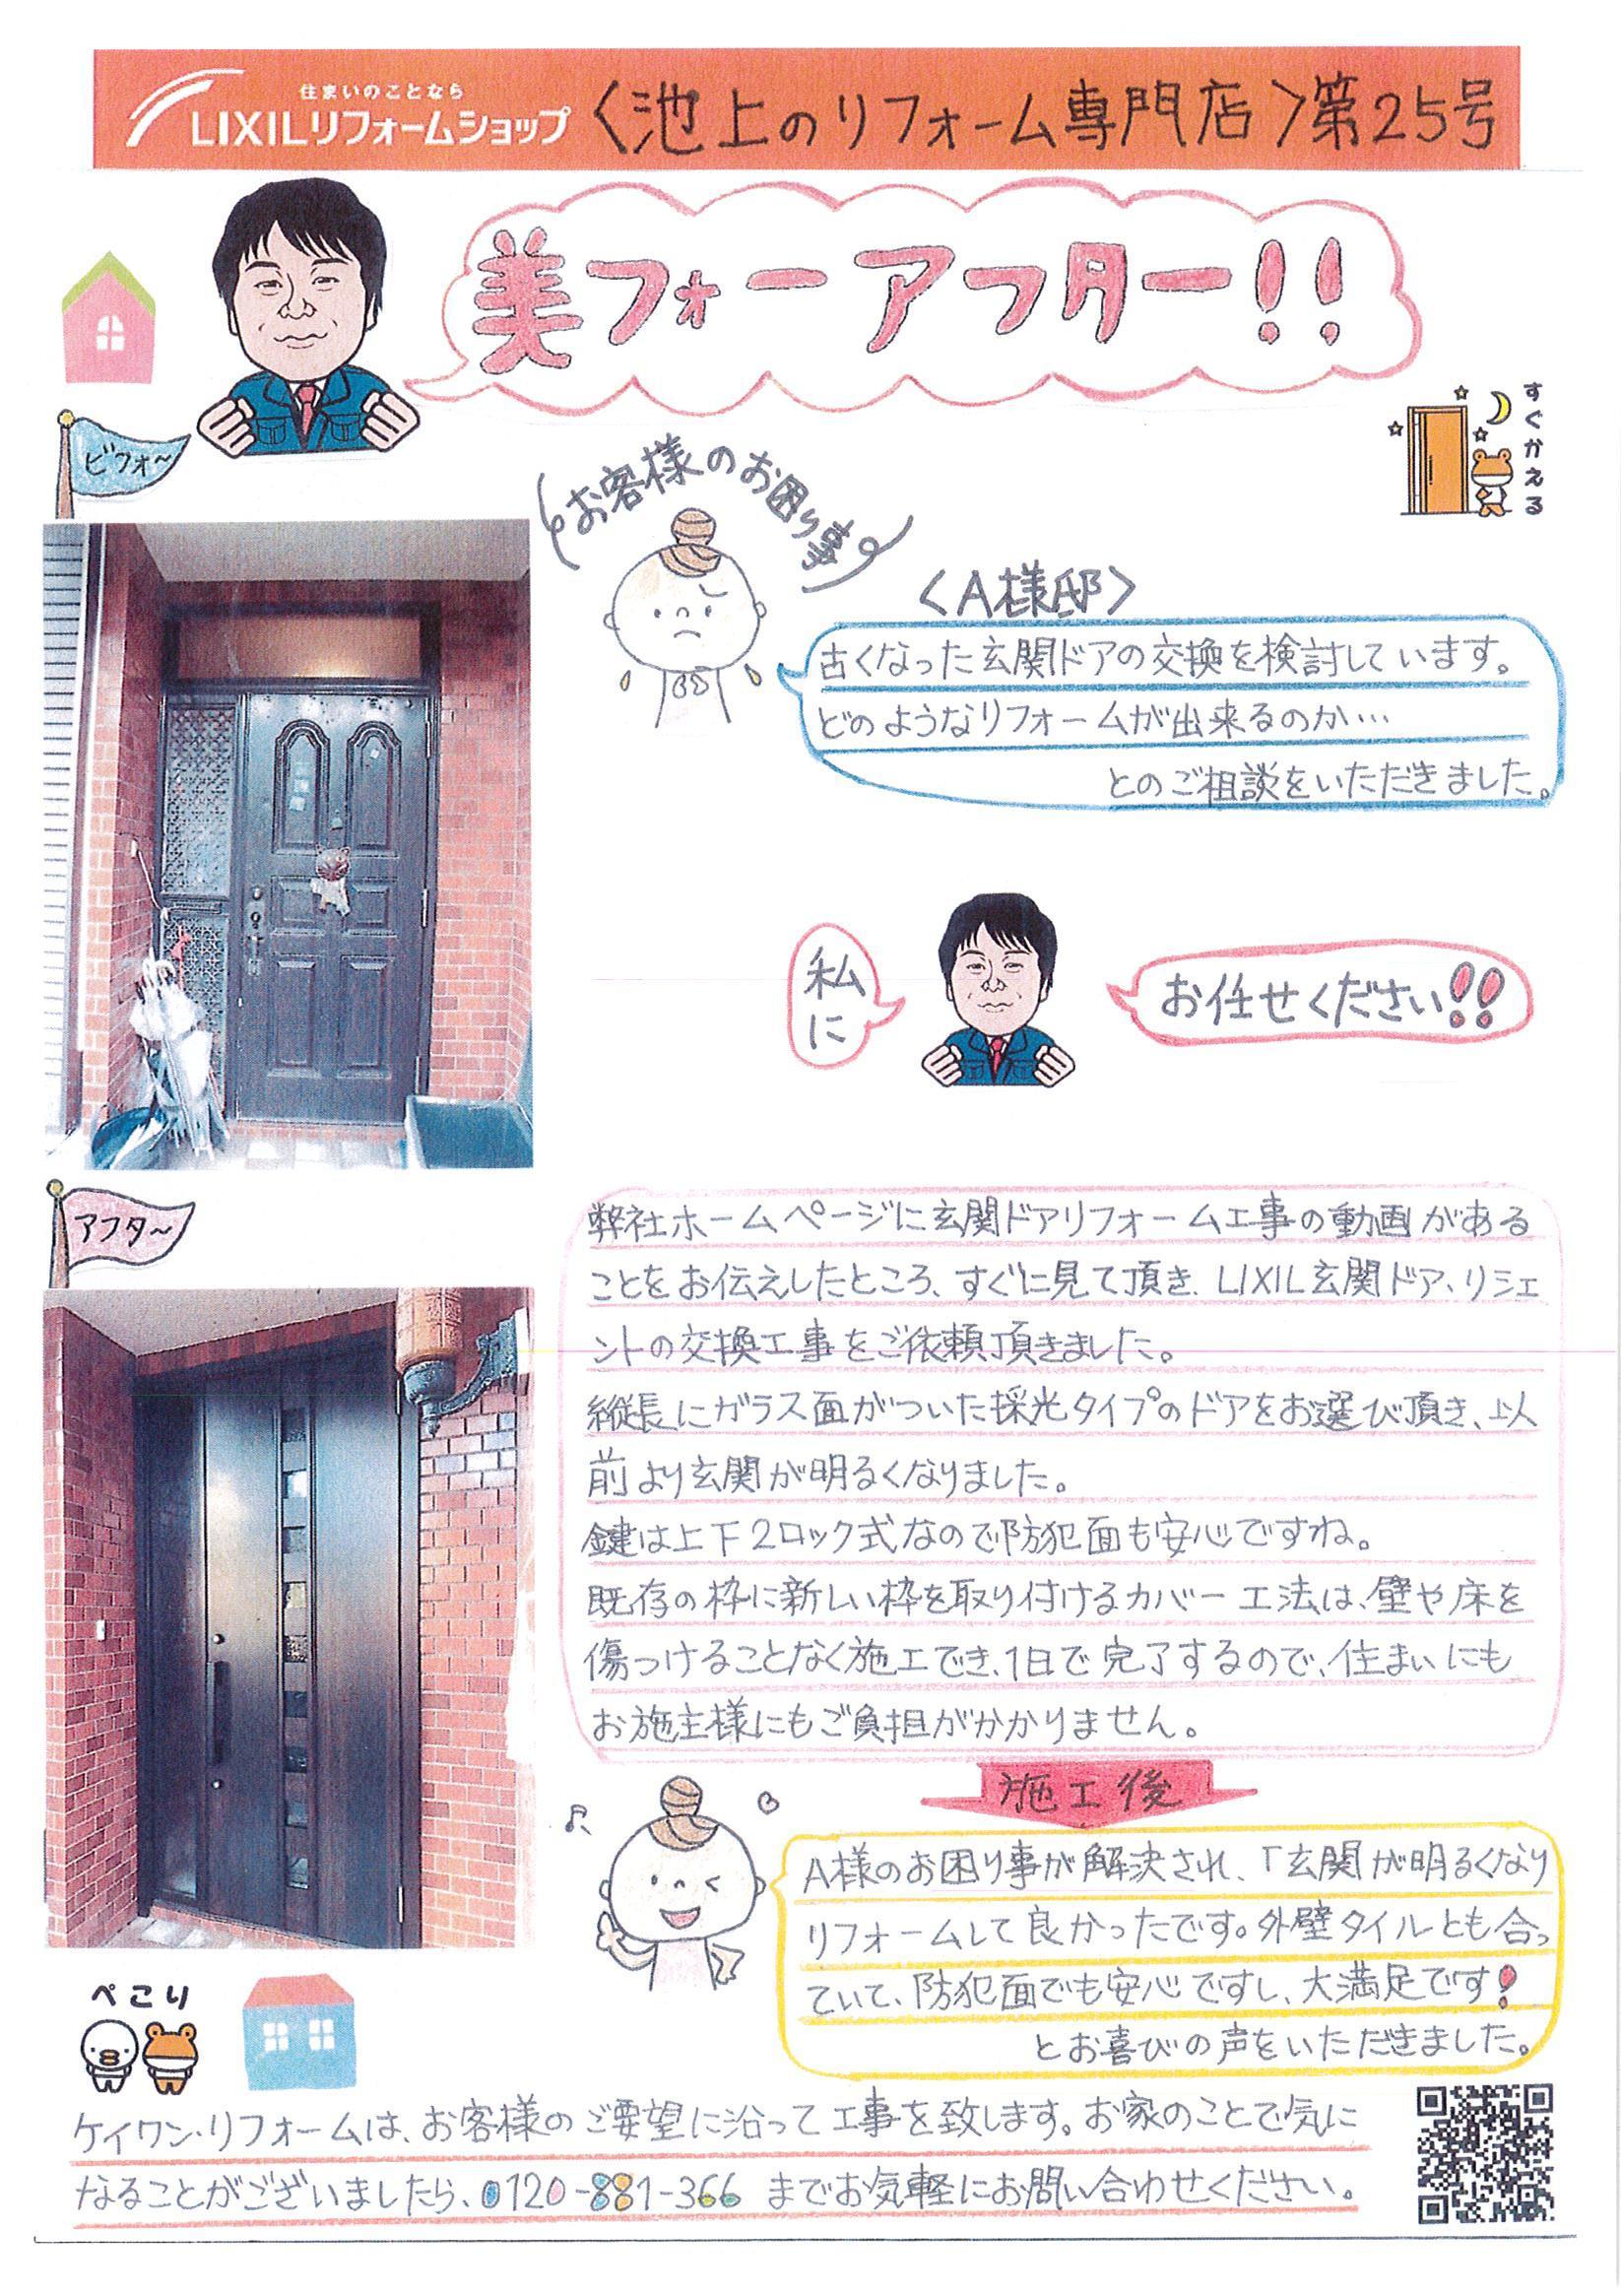 住まいのことなら
LIXILリフォームショップ〈池上のリフォーム専門店〉第25号
美フォーアフター!!
すぐかえる
ビフォ〜
お客様のお困り事
〈A様邸〉
古くなった玄関ドアの交換を検討しています。
どのようなリフォームが出来るのか…
とのご相談をいただきました。
私に
お任せください!!
アフタ〜
弊社ホームページに玄関ドアリフォーム工事の動画がある
ことをお伝えしたところ、すぐに見て頂き、LIXIL玄関ドア、リシェ
ントの交換工事をご依頼頂きました。
縦長にガラス面がついた採光タイプのドアをお選び頂き、以
前より玄関が明るくなりました。
鍵は上下2ロック式なので防犯面も安心ですね。
既存の枠に新しい枠を取り付けるカバー工法は、壁や床を
傷つけることなく施工でき、1日で完了するので、住まいにも
お施主様にもご負担がかかりません。
施工後
A様のお困り事が解決され、「玄関が明るくなり
リフォームして良かったです。外壁タイルとも合っ
ていて、防犯面でも安心ですし、大満足です!
とお喜びの声をいただきました。
ぺこり
ケイワン・リフォームは、お客様のご要望に沿って工事を致します。お家のことで気に
なることがございましたら、0120-881-366 までお気軽にお問い合わせください。